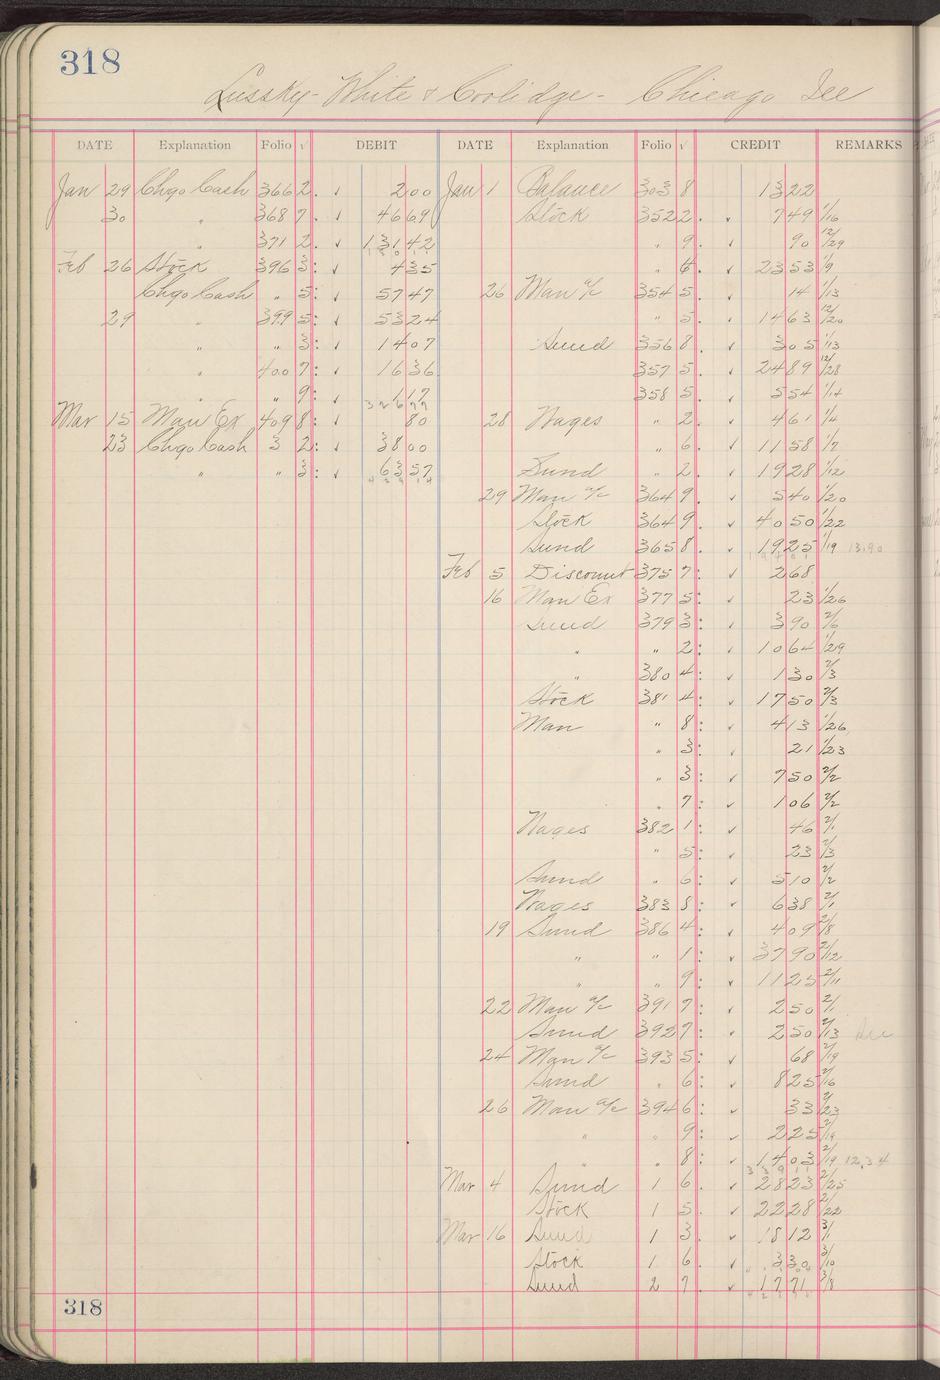 318
Lussky - White & Coolidge - Chicago Ill
DATE Explanation Folio √ DEBIT DATE Explanation Folio √ CREDIT REMARKS
Jan 29 Chgo Cash 366 2. ✓ 200 Jan 1 Balance 303 8 1322
30 " 368 7. ✓ 4669 Stock 352 2. ✓ 749 1/16
" 371 2. ✓ 13142 " 9. ✓ 90 12/29
Feb 26 Stock 396 3: ✓ 435 " 6. ✓ 2353 1/9
Chgo Cash " 5: ✓ 5747 26 Man a/c 354 5. ✓ 14 1/13
29 " 399 5: ✓ 5324 " 5. ✓ 1463 12/20
" " 3: ✓ 1407 Sund 356 8. ✓ 305 1/13
" 400 7: ✓ 1636 357 5. ✓ 2489 12/28
" " 9: ✓ 117 358 5. ✓ 554 1/14
Mar 15 Man Ex 409 8: ✓ 80 28 Wages " 2. ✓ 461 1/4
23 Chgo Cash 3 2: ✓ 3800 " 6. ✓ 1158 1/7
" " 3: ✓ 6357 Sund " 2. ✓ 1928 1/12
29 Man a/c 364 9. ✓ 540 1/20
Stock 364 9. ✓ 4050 1/22
Sund 365 8. ✓ 1925 1/19 13.90
Feb 5 Discount 375 7: ✓ 268
16 Man Ex 377 5: ✓ 23 1/26
Sund 379 3: ✓ 390 2/6
" " 2: ✓ 1064 1/29
" 380 4: ✓ 130 2/3
Stock 381 4: ✓ 1750 2/3
Man " 8: ✓ 413 1/26
" 3: ✓ 21 1/23
" 3: ✓ 750 2/2
" 7: ✓ 106 2/2
Wages 382 1: ✓ 46 2/1
" 5: ✓ 23 2/3
Sund " 6: ✓ 510 2/2
Wages 383 8: ✓ 638 2/1
19 Sund 386 4: ✓ 409 2/8
" " 1: ✓ 3790 2/12
" " 9: ✓ 1125 2/11
22 Man a/c 391 7: ✓ 250 2/1
Sund 392 7: ✓ 250 2/13
24 Man a/c 393 5: ✓ 68 2/19
Sund " 6: ✓ 825 2/16
26 Man a/c 394 6: ✓ 33 2/23
" " 9: ✓ 225 2/19
" " 8: ✓ 1403 2/19 12.34
Mar 4 Sund 1 6. ✓ 2823 2/25
Stock 1 5. ✓ 2228 2/22
Mar 16 Sund 1 3. ✓ 1812 3/1
Stock 1 6. ✓ 330 3/10
Sund 2 7. ✓ 1771 3/8
318